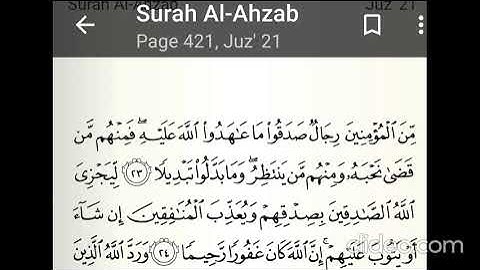 Surah Al-Ahzab
Juz' 21
Surah Al-Ahzab
Page 421, Juz' 21
مِّنَ ٱلْمُؤْمِنِينَ رِجَالٌ صَدَقُوا۟ مَا عَـٰهَدُوا۟ ٱللَّهَ عَلَيْهِ ۖ فَمِنْهُم مَّن
قَضَىٰ نَحْبَهُۥ وَمِنْهُم مَّن يَنتَظِرُ ۖ وَمَا بَدَّلُوا۟ تَبْدِيلًا ٢٣ لِّيَجْزِىَ
ٱللَّهُ ٱلصَّـٰدِقِينَ بِصِدْقِهِمْ وَيُعَذِّبَ ٱلْمُنَـٰفِقِينَ إِن شَآءَ
أَوْ يَتُوبَ عَلَيْهِمْ ۚ إِنَّ ٱللَّهَ كَانَ غَفُورًا رَّحِيمًا ٢٤ وَرَدَّ ٱللَّهُ ٱلَّذِينَ
clideo.com